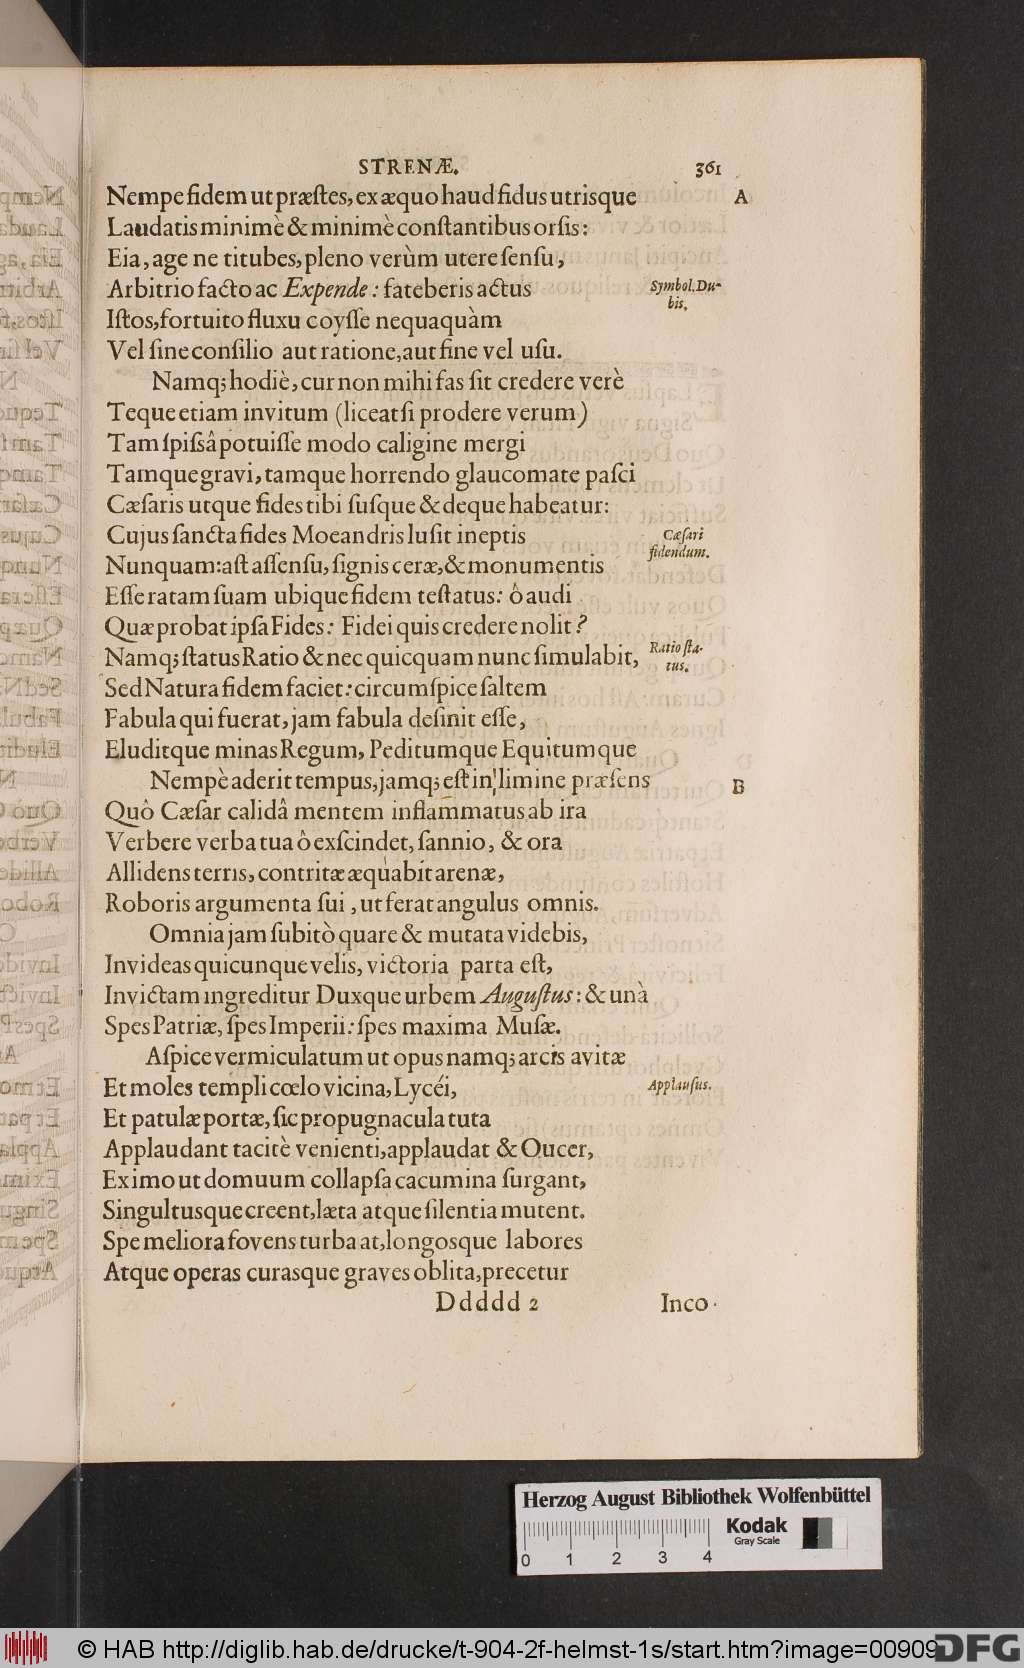 STRENÆ. 361
Nempe fidem ut præſtes, ex æquo haud fidus utrisque A
Laudatis minimè & minimè conſtantibus orſis:
Eia, age ne titubes, pleno verùm utere ſenſu,
Arbitrio facto ac Expende: fateberis actus Symbol. Du-
bis.
Iſtos, fortuito fluxu coyſſe nequaquàm
Vel ſine conſilio aut ratione, aut fine vel uſu.
Namq; hodiè, cur non mihi fas ſit credere verè
Teque etiam invitum (liceat ſi prodere verum)
Tam ſpiſsâ potuiſſe modo caligine mergi
Tamque gravi, tamque horrendo glaucomate paſci
Cæſaris utque fides tibi ſuſque & deque habeatur:
Cujus ſancta fides Moeandris luſit ineptis Cæſari
fidendum.
Nunquam: aſt aſſenſu, ſignis ceræ, & monumentis
Eſſe ratam ſuam ubique fidem teſtatus: ô audi
Quæ probat ipſa Fides: Fidei quis credere nolit?
Namq; ſtatus Ratio & nec quicquam nunc ſimulabit, Ratio ſta-
tus.
Sed Natura fidem faciet: circumſpice ſaltem
Fabula qui fuerat, jam fabula deſinit eſſe,
Eluditque minas Regum, Peditumque Equitumque
Nempè aderit tempus, jamq; eſt in limine præſens B
Quô Cæſar calidâ mentem inflammatus ab ira
Verbere verba tua ô exſcindet, ſannio, & ora
Allidens terris, contritæ æquabit arenæ,
Roboris argumenta ſui, ut ferat angulus omnis.
Omnia jam ſubitò quare & mutata videbis,
Invideas quicunque velis, victoria parta eſt,
Invictam ingreditur Duxque urbem Auguſtus: & unà
Spes Patriæ, ſpes Imperii: ſpes maxima Muſæ.
Aſpice vermiculatum ut opus namq; arcis avitæ
Et moles templi cœlo vicina, Lycéi, Applauſus.
Et patulæ portæ, ſic propugnacula tuta
Applaudant tacitè venienti, applaudat & Oucer,
Eximo ut domuum collapſa cacumina ſurgant,
Singultusque creent, læta atque ſilentia mutent.
Spe meliora fovens turba at, longosque labores
Atque operas curasque graves oblita, precetur
Ddddd 2 Inco-
Herzog August Bibliothek Wolfenbüttel
Kodak
Gray Scale
0 1 2 3 4
© HAB http://diglib.hab.de/drucke/t-904-2f-helmst-1s/start.htm?image=00909
DFG